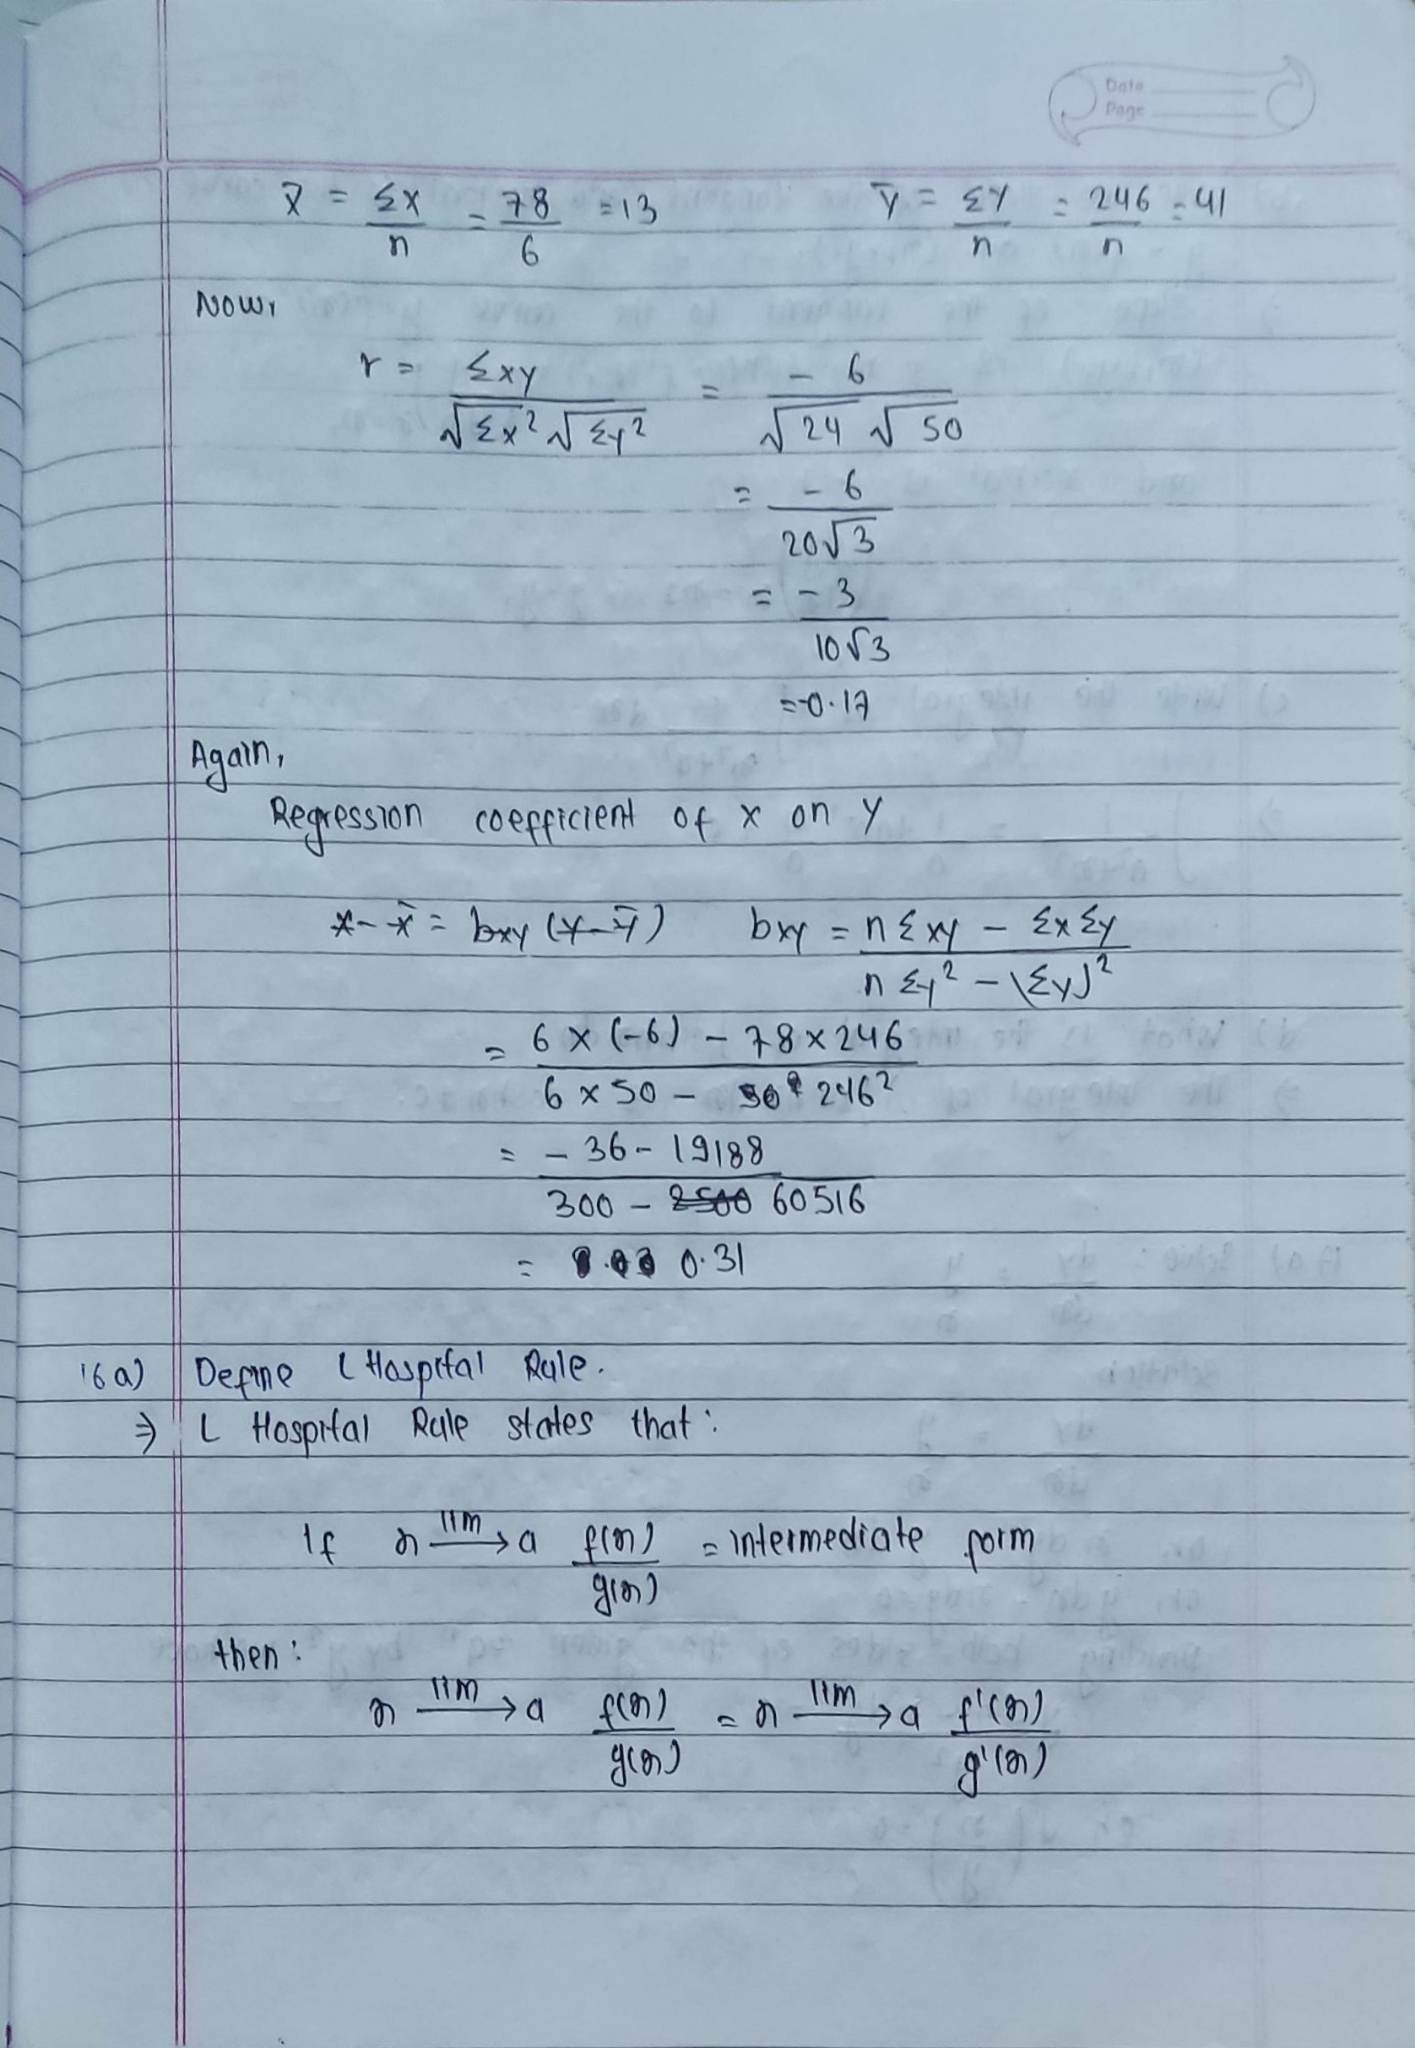 Date
Page
x̄ = Σx/n = 78/6 = 13    ȳ = ΣY/n = 246/n = 41
Now,
r = Σxy/√Σx² √Σy² = -6/√24 √50
= -6/20√3
= -3/10√3
= -0.17
Again,
Regression coefficient of x on y
x - x̄ = bxy (y - ȳ)    bxy = nΣxy - ΣxΣy/nΣy² - (Σy)²
= 6 × (-6) - 78 × 246/6 × 50 - 246²
= -36 - 19188/300 - 60516
= 0.31
16 a) Define L Hospital Rule.
⇒ L Hospital Rule states that :
If x lim→ a f(x)/g(x) = intermediate form
then :
x lim→ a f(x)/g(x) = x lim→ a f'(x)/g'(x)